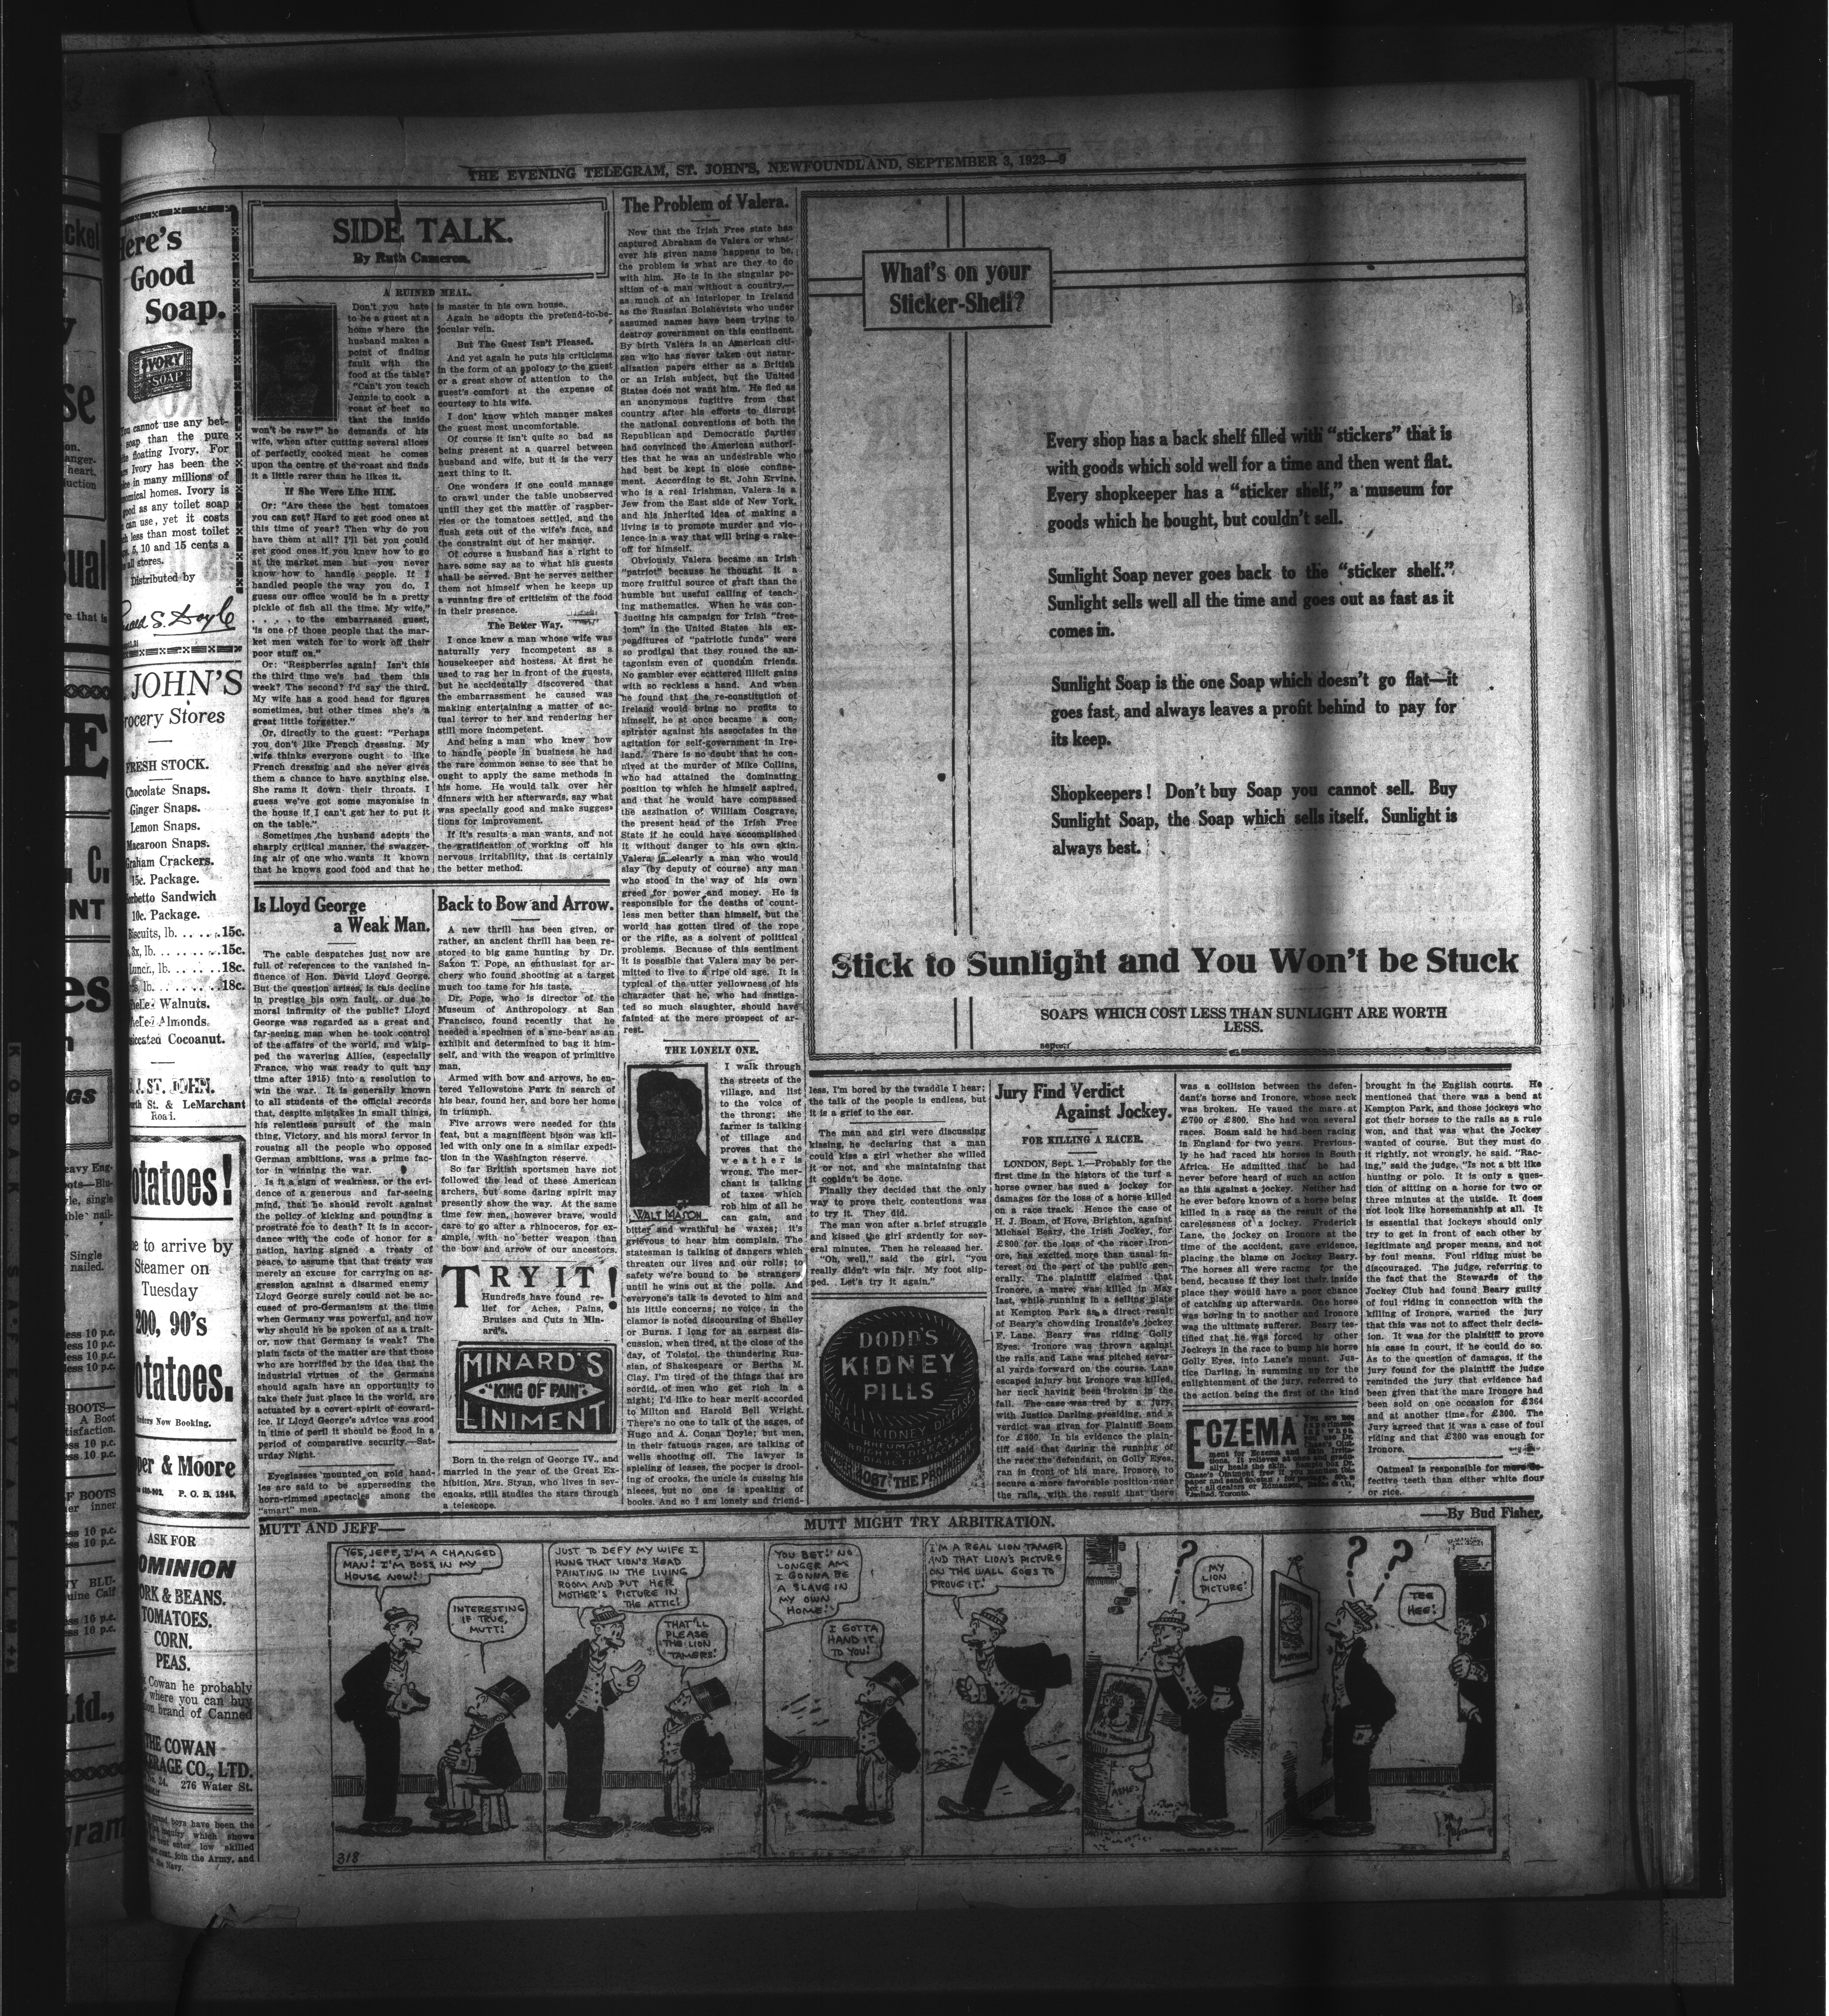 THE EVENING TELEGRAM, ST. JOHN'S, NEWFOUNDLAND, SEPTEMBER 3, 1923—9
Here's
Good
Soap.
IVORY
SOAP
You cannot use any bet-
soap than the pure
floating Ivory. For
Ivory has been the
in many millions of
homes. Ivory is
good as any toilet soap
can use, yet it costs
less than most toilet
5, 10 and 15 cents a
all stores.
Distributed by
Gerald S. Doyle
JOHN'S
Grocery Stores
FRESH STOCK.
Chocolate Snaps.
Ginger Snaps.
Lemon Snaps.
Macaroon Snaps.
Graham Crackers.
15c. Package.
Sandwich
10c. Package.
Biscuits, lb. . . . . .15c.
lb. . . . . . . . .15c.
Lunch, lb. . . . . . .18c.
lb. . . . . . . . .18c.
Walnuts.
Almonds.
Cocoanut.
J. ST. JOHN.
St. & LeMarchant
Road.
Potatoes!
to arrive by
Steamer on
Tuesday
200, 90's
Potatoes.
Orders Now Booking.
& Moore
P. O. B. 1245.
ASK FOR
DOMINION
PORK & BEANS.
TOMATOES.
CORN.
PEAS.
Cowan he probably
where you can buy
brand of Canned
THE COWAN
BROKERAGE CO., LTD.
276 Water St.
boys have been the
inquiry which shows
enter low skilled
join the Army, and
the Navy.
SIDE TALK.
By Ruth Cameron.
A RUINED MEAL.
Don't you hate
to be a guest at a
home where the
husband makes a
point of finding
fault with the
food at the table?
"Can't you teach
Jennie to cook a
roast of beef so
that the inside
won't be raw?" he demands of his
wife, when after cutting several slices
of perfectly cooked meat he comes
upon the centre of the roast and finds
it a little rarer than he likes it.
If She Were Like HIM.
Or: "Are these the best tomatoes
you can get? Hard to get good ones at
this time of year? Then why do you
have them at all? I'll bet you could
get good ones if you knew how to go
at the market men but you never
know how to handle people. If I
handled people the way you do, I
guess our office would be in a pretty
pickle of fish all the time. My wife,"
. . . . to the embarrassed guest,
"is one of those people that the mar-
ket men watch for to work off their
poor stuff on."
Or: "Respberries again! Isn't this
the third time we's had them this
week? The second? I'd say the third.
My wife has a good head for figures
sometimes, but other times she's a
great little forgetter."
Or, directly to the guest: "Perhaps
you don't like French dressing. My
wife thinks everyone ought to like
French dressing and she never gives
them a chance to have anything else.
She rams it down their throats. I
guess we've got some mayonaise in
the house if I can't get her to put it
on the table."
Sometimes the husband adopts the
sharply critical manner, the swagger-
ing air of one who wants it known
that he knows good food and that he
is master in his own house.
Again he adopts the pretend-to-be-
jocular vein.
But The Guest Isn't Pleased.
And yet again he puts his criticisms
in the form of an apology to the guest
or a great show of attention to the
guest's comfort at the expense of
courtesy to his wife.
I don' know which manner makes
the guest most uncomfortable.
Of course it isn't quite so bad as
being present at a quarrel between
husband and wife, but it is the very
next thing to it.
One wonders if one could manage
to crawl under the table unobserved
until they get the matter of raspber-
ries or the tomatoes settled, and the
flush gets out of the wife's face, and
the constraint out of her manner.
Of course a husband has a right to
have some say as to what his guests
shall be served. But he serves neither
them not himself when he keeps up
a running fire of criticism of the food
in their presence.
The Better Way.
I once knew a man whose wife was
naturally very incompetent as a
housekeeper and hostess. At first he
used to rag her in front of the guests,
but he accidentally discovered that
the embarrassment he caused was
making entertaining a matter of ac-
tual terror to her and rendering her
still more incompetent.
And being a man who knew how
to handle people in business he had
the rare common sense to see that he
ought to apply the same methods in
his home. He would talk over her
dinners with her afterwards, say what
was specially good and make sugges-
tions for improvement.
If it's results a man wants, and not
the gratification of working off his
nervous irritability, that is certainly
the better method.
Is Lloyd George
a Weak Man.
The cable despatches just now are
full of references to the vanished in-
fluence of Hon. David Lloyd George.
But the question arises, is this decline
in prestige his own fault, or due to
moral infirmity of the public? Lloyd
George was regarded as a great and
far-seeing man when he took control
of the affairs of the world, and whip-
ped the wavering Allies, (especially
France, who was ready to quit any
time after 1915) into a resolution to
win the war. It is generally known
to all students of the official records
that, despite mistakes in small things,
his relentless pursuit of the main
thing, Victory, and his moral fervor in
rousing all the people who opposed
German ambitions, was a prime fac-
tor in winning the war.
Is it a sign of weakness, or the evi-
dence of a generous and far-seeing
mind, that he should revolt against
the policy of kicking and pounding a
prostrate foe to death? It is in accor-
dance with the code of honor for a
nation, having signed a treaty of
peace, to assume that that treaty was
merely an excuse for carrying on ag-
gression against a disarmed enemy
Lloyd George surely could not be ac-
cused of pro-Germanism at the time
when Germany was powerful, and now
why should he be spoken of as a trait-
or, now that Germany is weak? The
plain facts of the matter are that those
who are horrified by the idea that the
industrial virtues of the Germans
should again have an opportunity to
take their just place in the world, are
actuated by a covert spirit of coward-
ice. If Lloyd George's advice was good
in time of peril it should be good in a
period of comparative security.—Sat-
urday Night.
Eyeglasses mounted on gold hand-
les are said to be superseding the
horn-rimmed spectacles among the
"smart" men.
Back to Bow and Arrow.
A new thrill has been given, or
rather, an ancient thrill has been re-
stored to big game hunting by Dr.
Saxon T. Pope, an enthusiast for ar-
chery who found shooting at a target
much too tame for his taste.
Dr. Pope, who is director of the
Museum of Anthropology at San
Francisco, found recently that he
needed a specimen of a sne-bear as an
exhibit and determined to bag it him-
self, and with the weapon of primitive
man.
Armed with bow and arrows, he en-
tered Yellowstone Park in search of
his bear, found her, and bore her home
in triumph.
Five arrows were needed for this
feat, but a magnificent bison was kil-
led with only one in a similar expedi-
tion in the Washington reserve.
So far British sportsmen have not
followed the lead of these American
archers, but some daring spirit may
presently show the way. At the same
time few men, however brave, would
care to go after a rhinoceros, for ex-
ample, with no better weapon than
the bow and arrow of our ancestors.
TRY IT!
Hundreds have found re-
lief for Aches, Pains,
Bruises and Cuts in Min-
ard's.
MINARD'S
"KING OF PAIN"
LINIMENT
Born in the reign of George IV., and
married in the year of the Great Ex-
hibition, Mrs. Styan, who lives in sev-
enoaks, still studies the stars through
a telescope.
The Problem of Valera.
Now that the Irish Free state has
captured Abraham de Valera or what-
ever his given name happens to be,
the problem is what are they to do
with him. He is in the singular po-
sition of a man without a country,—
as much of an interloper in Ireland
as the Russian Bolshevists who under
assumed names have been trying to
destroy government on this continent.
By birth Valera is an American citi-
zen who has never taken out natur-
alisation papers either as a British
or an Irish subject, but the United
States does not want him. He fled as
an anonymous fugitive from that
country after his efforts to disrupt
the national conventions of both the
Republican and Democratic parties
had convinced the American authori-
ties that he was an undesirable who
had best be kept in close confine-
ment. According to St. John Ervine,
who is a real Irishman, Valera is a
Jew from the East side of New York,
and his inherited idea of making a
living is to promote murder and vio-
lence in a way that will bring a rake-
off for himself.
Obviously Valera became an Irish
"patriot" because he thought it a
more fruitful source of graft than the
humble but useful calling of teach-
ing mathematics. When he was con-
ducting his campaign for Irish "free-
dom" in the United States his ex-
penditures of "patriotic funds" were
so prodigal that they roused the an-
tagonism even of quondam friends.
No gambler ever scattered illicit gains
with so reckless a hand. And when
he found that the re-constitution of
Ireland would bring no profits to
himself, he at once became a con-
spirator against his associates in the
agitation for self-government in Ire-
land. There is no doubt that he con-
nived at the murder of Mike Collins,
who had attained the dominating
position to which he himself aspired,
and that he would have compassed
the assination of William Cosgrave,
the present head of the Irish Free
State if he could have accomplished
it without danger to his own skin.
Valera is clearly a man who would
slay (by deputy of course) any man
who stood in the way of his own
greed for power and money. He is
responsible for the deaths of count-
less men better than himself, but the
world has gotten tired of the rope
or the rifle, as a solvent of political
problems. Because of this sentiment
it is possible that Valera may be per-
mitted to live to a ripe old age. It is
typical of the utter yellowness of his
character that he, who had instiga-
ted so much slaughter, should have
fainted at the mere prospect of ar-
rest.
THE LONELY ONE.
WALT MASON
I walk through
the streets of the
village, and list
to the voice of
the throng; the
farmer is talking
of tillage and
proves that the
weather is
wrong. The mer-
chant is talking
of taxes which
rob him of all he
can gain, and
bitter and wrathful he waxes; it's
grievous to hear him complain. The
statesman is talking of dangers which
threaten our lives and our rolls; to
safety we're bound to be strangers
until he wins out at the polls. And
everyone's talk is devoted to him and
his little concerns; no voice in the
clamor is noted discoursing of Shelley
or Burns. I long for an earnest dis-
cussion, when tired, at the close of the
day, of Tolstoi, the thundering Rus-
sian, of Shakespeare or Bertha M.
Clay. I'm tired of the things that are
sordid, of men who get rich in a
night; I'd like to hear merit accorded
to Milton and Harold Bell Wright.
There's no one to talk of the sages, of
Hugo and A. Conan Doyle; but men,
in their fatuous rages, are talking of
wells shooting oil. The lawyer is
spieling of leases, the pooper is drool-
ing of crooks, the uncle is cussing his
nieces, but no one is speaking of
books. And so I am lonely and friend-
less, I'm bored by the twaddle I hear;
the talk of the people is endless, but
it is a grief to the ear.
The man and girl were discussing
kissing, he declaring that a man
could kiss a girl whether she willed
it or not, and she maintaining that
it couldn't be done.
Finally they decided that the only
way to prove their contentions was
to try it. They did.
The man won after a brief struggle
and kissed the girl ardently for sev-
eral minutes. Then he released her.
"Oh, well," said the girl, "you
really didn't win fair. My foot slip-
ped. Let's try it again."
DODD'S
KIDNEY
PILLS
What's on your
Sticker-Shelf?
Every shop has a back shelf filled with "stickers" that is
with goods which sold well for a time and then went flat.
Every shopkeeper has a "sticker shelf," a museum for
goods which he bought, but couldn't sell.
Sunlight Soap never goes back to the "sticker shelf."
Sunlight sells well all the time and goes out as fast as it
comes in.
Sunlight Soap is the one Soap which doesn't go flat—it
goes fast, and always leaves a profit behind to pay for
its keep.
Shopkeepers! Don't buy Soap you cannot sell. Buy
Sunlight Soap, the Soap which sells itself. Sunlight is
always best.
Stick to Sunlight and You Won't be Stuck
SOAPS WHICH COST LESS THAN SUNLIGHT ARE WORTH
LESS.
Jury Find Verdict
Against Jockey.
FOR KILLING A RACER.
LONDON, Sept. 1.—Probably for the
first time in the histors of the turf a
horse owner has sued a jockey for
damages for the loss of a horse killed
on a race track. Hence the case of
H. J. Boam, of Hove, Brighton, against
Michael Beary, the Irish Jockey, for
£800 for the loss of the racer Iron-
ore, has excited more than usual in-
terest on the part of the public gen-
erally. The plaintiff claimed that
Ironore, a mare, was killed in May
last, while running in a selling plate
at Kempton Park as a direct result
of Beary's chowding Ironside's jockey
F. Lane. Beary was riding Golly
Eyes. Ironore was thrown against
the rails and Lane was pitched sever-
al yards forward on the course. Lane
escaped injury but Ironore was killed,
her neck having been broken in the
fall. The case was tred by a jury,
with Justice Darling presiding, and a
verdict was given for Plaintiff Boam
for £300. In his evidence the plain-
tiff said that during the running of
the race the defendant, on Golly Eyes,
ran in front of his mare, Ironore, to
secure a more favorable position near
the rails, with the result that there
was a collision between the defen-
dant's horse and Ironore, whose neck
was broken. He vaued the mare at
£700 or £800. She had won several
races. Boam said he had been racing
in England for two years. Previous-
ly he had raced his horses in South
Africa. He admitted that he had
never before heard of such an action
as this against a jockey. Neither had
he ever before known of a horse being
killed in a race as the result of the
carelessness of a jockey. Frederick
Lane, the jockey on Ironore at the
time of the accident, gave evidence,
placing the blame on Jockey Beary.
The horses all were racing for the
bend, because if they lost their inside
place they would have a poor chance
of catching up afterwards. One horse
was boring in to another and Ironore
was the ultimate sufferer. Beary tes-
tified that he was forced by other
Jockeys in the race to bump his horse
Golly Eyes, into Lane's mount. Jus-
tice Darling, in summing up for the
enlightenment of the jury, referred to
the action being the first of the kind
brought in the English courts. He
mentioned that there was a bend at
Kempton Park, and those jockeys who
got their horses to the rails as a rule
won, and that was what the Jockey
wanted of course. But they must do
it rightly, not wrongly, he said. "Rac-
ing," said the judge, "Is not a bit like
hunting or polo. It is only a ques-
tion of sitting on a horse for two or
three minutes at the utside. It does
not look like horsemanship at all. It
is essential that jockeys should only
try to get in front of each other by
legitimate and proper means, and not
by foul means. Foul riding must be
discouraged. The judge, referring to
the fact that the Stewards of the
Jockey Club had found Beary guilty
of foul riding in connection with the
killing of Ironore, warned the jury
that this was not to affect their decis-
ion. It was for the plaintiff to prove
his case in court, if he could do so.
As to the question of damages, if the
jury found for the plaintiff the judge
reminded the jury that evidence had
been given that the mare Ironore had
been sold on one occasion for £364
and at another time for £300. The
Jury agreed that it was a case of foul
riding and that £300 was enough for
Ironore.
Oatmeal is responsible for more de-
fective teeth than either white flour
or rice.
ECZEMA
You are not
experiment-
ing when
you use Dr.
Chase's Oint-
ment for Eczema and Skin Irrita-
tions. It relieves at once and gradu-
ally heals the skin.
MUTT AND JEFF—
MUTT MIGHT TRY ARBITRATION.
—By Bud Fisher.
YES, JEFF, I'M A CHANGED
MAN! I'M BOSS IN MY
HOUSE NOW!
INTERESTING
IF TRUE,
MUTT!
JUST TO DEFY MY WIFE I
HUNG THAT LION'S HEAD
PAINTING IN THE LIVING
ROOM AND PUT HER
MOTHER'S PICTURE IN
THE ATTIC!
THAT'LL
PLEASE
THE LION
TAMERS!
YOU BET! NO
LONGER AM
I GONNA BE
A SLAVE IN
MY OWN
HOME!
I GOTTA
HAND IT
TO YOU!
I'M A REAL LION TAMER
AND THAT LION'S PICTURE
ON THE WALL GOES TO
PROVE IT!
?
MY
LION
PICTURE!
ASHES
? ?
MOTHER
TEE
HEE!
318